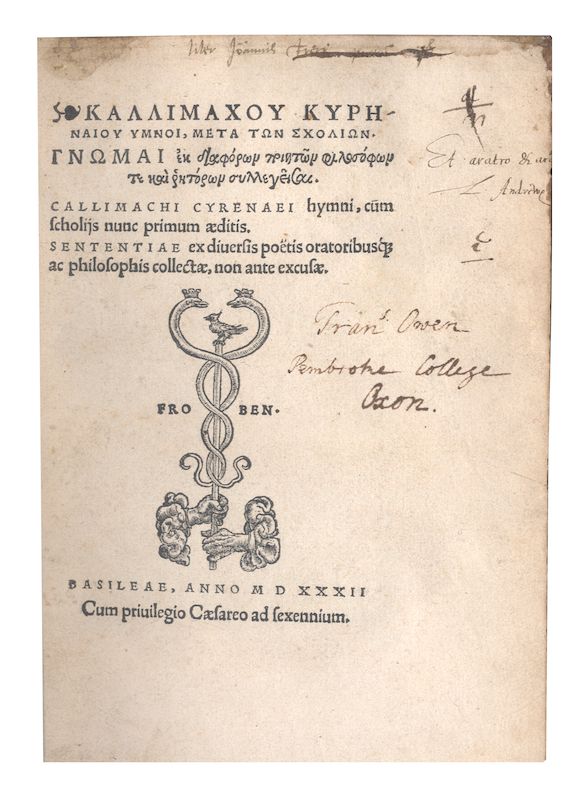 liber Joannis
ΚΑΛΛΙΜΑΧΟΥ ΚΥΡΗ-
ΝΑΙΟΥ ΥΜΝΟΙ, ΜΕΤΑ ΤΩΝ ΣΧΟΛΙΩΝ.
ΓΝΩΜΑΙ ἐκ διαφόρων ποιητῶν φιλοσόφων
τε καὶ ῥητόρων συλλεγεῖσαι.
CALLIMACHI CYRENAEI hymni, cũm
scholijs nunc primum æditis.
SENTENTIAE ex diuersis poëtis oratoribusq́;
ac philosophis collectæ, non ante excusæ.
Et aratro &
L. Andrewe
Fran^s Owen
Pembroke College
Oxon.
FRO BEN.
BASILEAE, ANNO M D XXXII
Cum priuilegio Cæsareo ad sexennium.